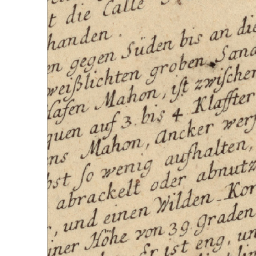 t die Calle
handen.
n gegen Süden bis an die
weißlichten groben Sand
Hafen Mahon, ist zwischen
quen auf 3. bis 4 Klaffter
ens Mahon, Ancker werf
bst so wenig aufhalten,
abrackelt oder abnutz
, und einen Wilden-Kor
einer Höhe von 39. graden
Er ist eng, un